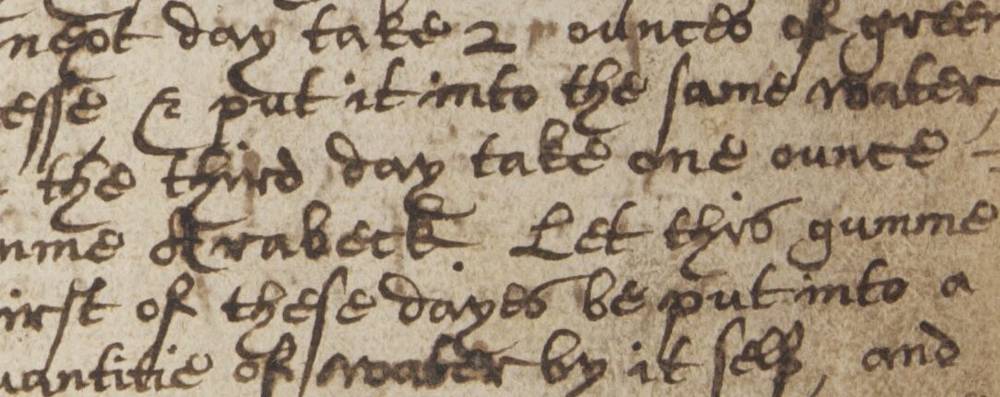 next day take 2 ounces of green
esse & put it into the same water,
the third day take one ounce -
mme Arabeck Let this gumme
irst of these dayes be put into a
uantitie of water by it self, and